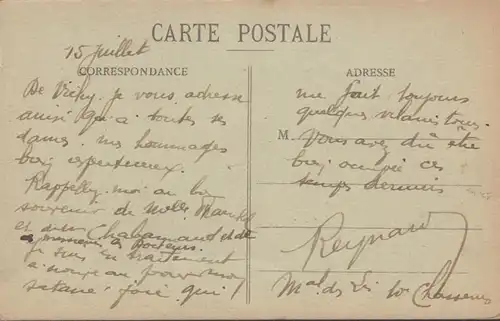 CARTE POSTALE
15 juillet
CORRESPONDANCE
De Vichy je vous adresse
ainsi qu'à toutes ces
dames mes hommages
bien respectueux.
Rappelez-moi au bon
souvenir de Melles
et Chabannand et de
à Poitiers.
Je suis en traitement
à nouveau pour mon
satané foie qui
ADRESSE
me fait toujours
quelques vilains tours.
M. Vous avez dû être
bien occupée ces
temps derniers
Reynaud
Mal des Lis